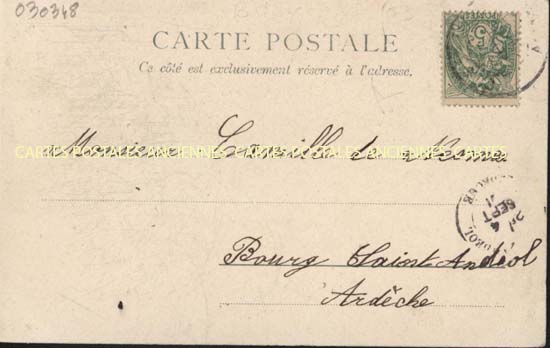 030348
CARTE POSTALE
Ce côté est exclusivement réservé à l'adresse.
Monsieur Camille de
CARTES POSTALES ANCIENNES CARTES POSTALES ANCIENNES CARTES
SEPT
Bourg Saint Andéol
Ardèche